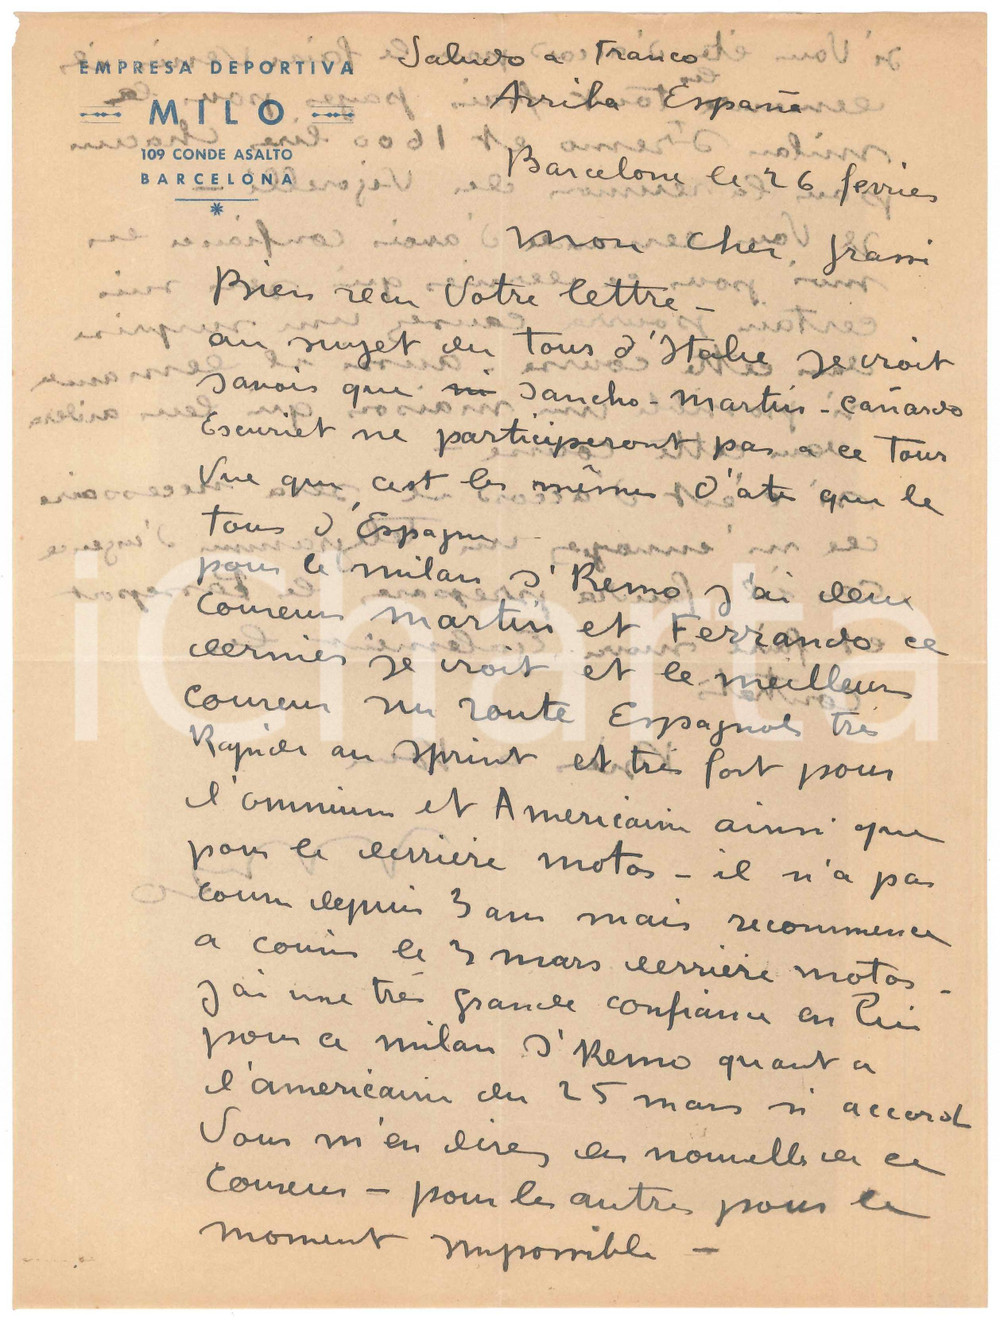 EMPRESA DEPORTIVA
MILO
109 CONDE ASALTO
BARCELONA
Saludo a Franco
Arriba España
Barcelone le 26 fevrier
Mon cher Grassi
Bien recu Votre lettre –
au sujet du tour d'Italie je croit
savoir que ni Sancho – Martin – Cañardo
Escuriet ne participeront pas a ce tour
Vue que c'est les mêmes d'ate que le
tour d'Espagne –
pour le Milan St Remo j'ai deux
coureur Martin et Ferrando ce
dernier je croit et le meilleur
coureur sur route Espagnols très
Rapide au sprint et très fort pour
l'omnium et Americaine ainsi que
pour le derrière motos – il n'a pas
couru depuis 3 ans mais recommence
a courir le 3 mars derrière motos –
j'ai une très grande confiance en lui
pour ce Milan St Remo quant a
l'americaine du 25 mars si accord
Vous m'en direz des nouvelle de ce
coureur – pour les autres pour le
moment impossible –
iCharta